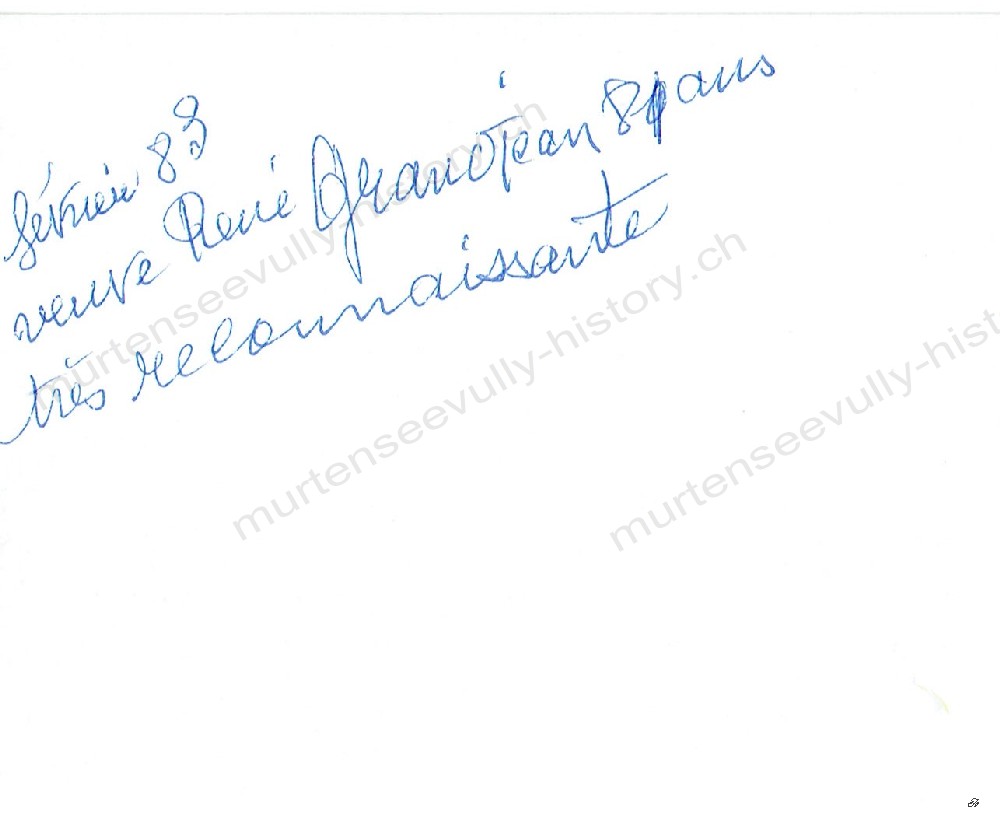 février 83
veuve René Grandjean 81 ans
très reconnaissante
murtenseevully-history.ch
murtenseevully-history.ch
murtenseevully-hist